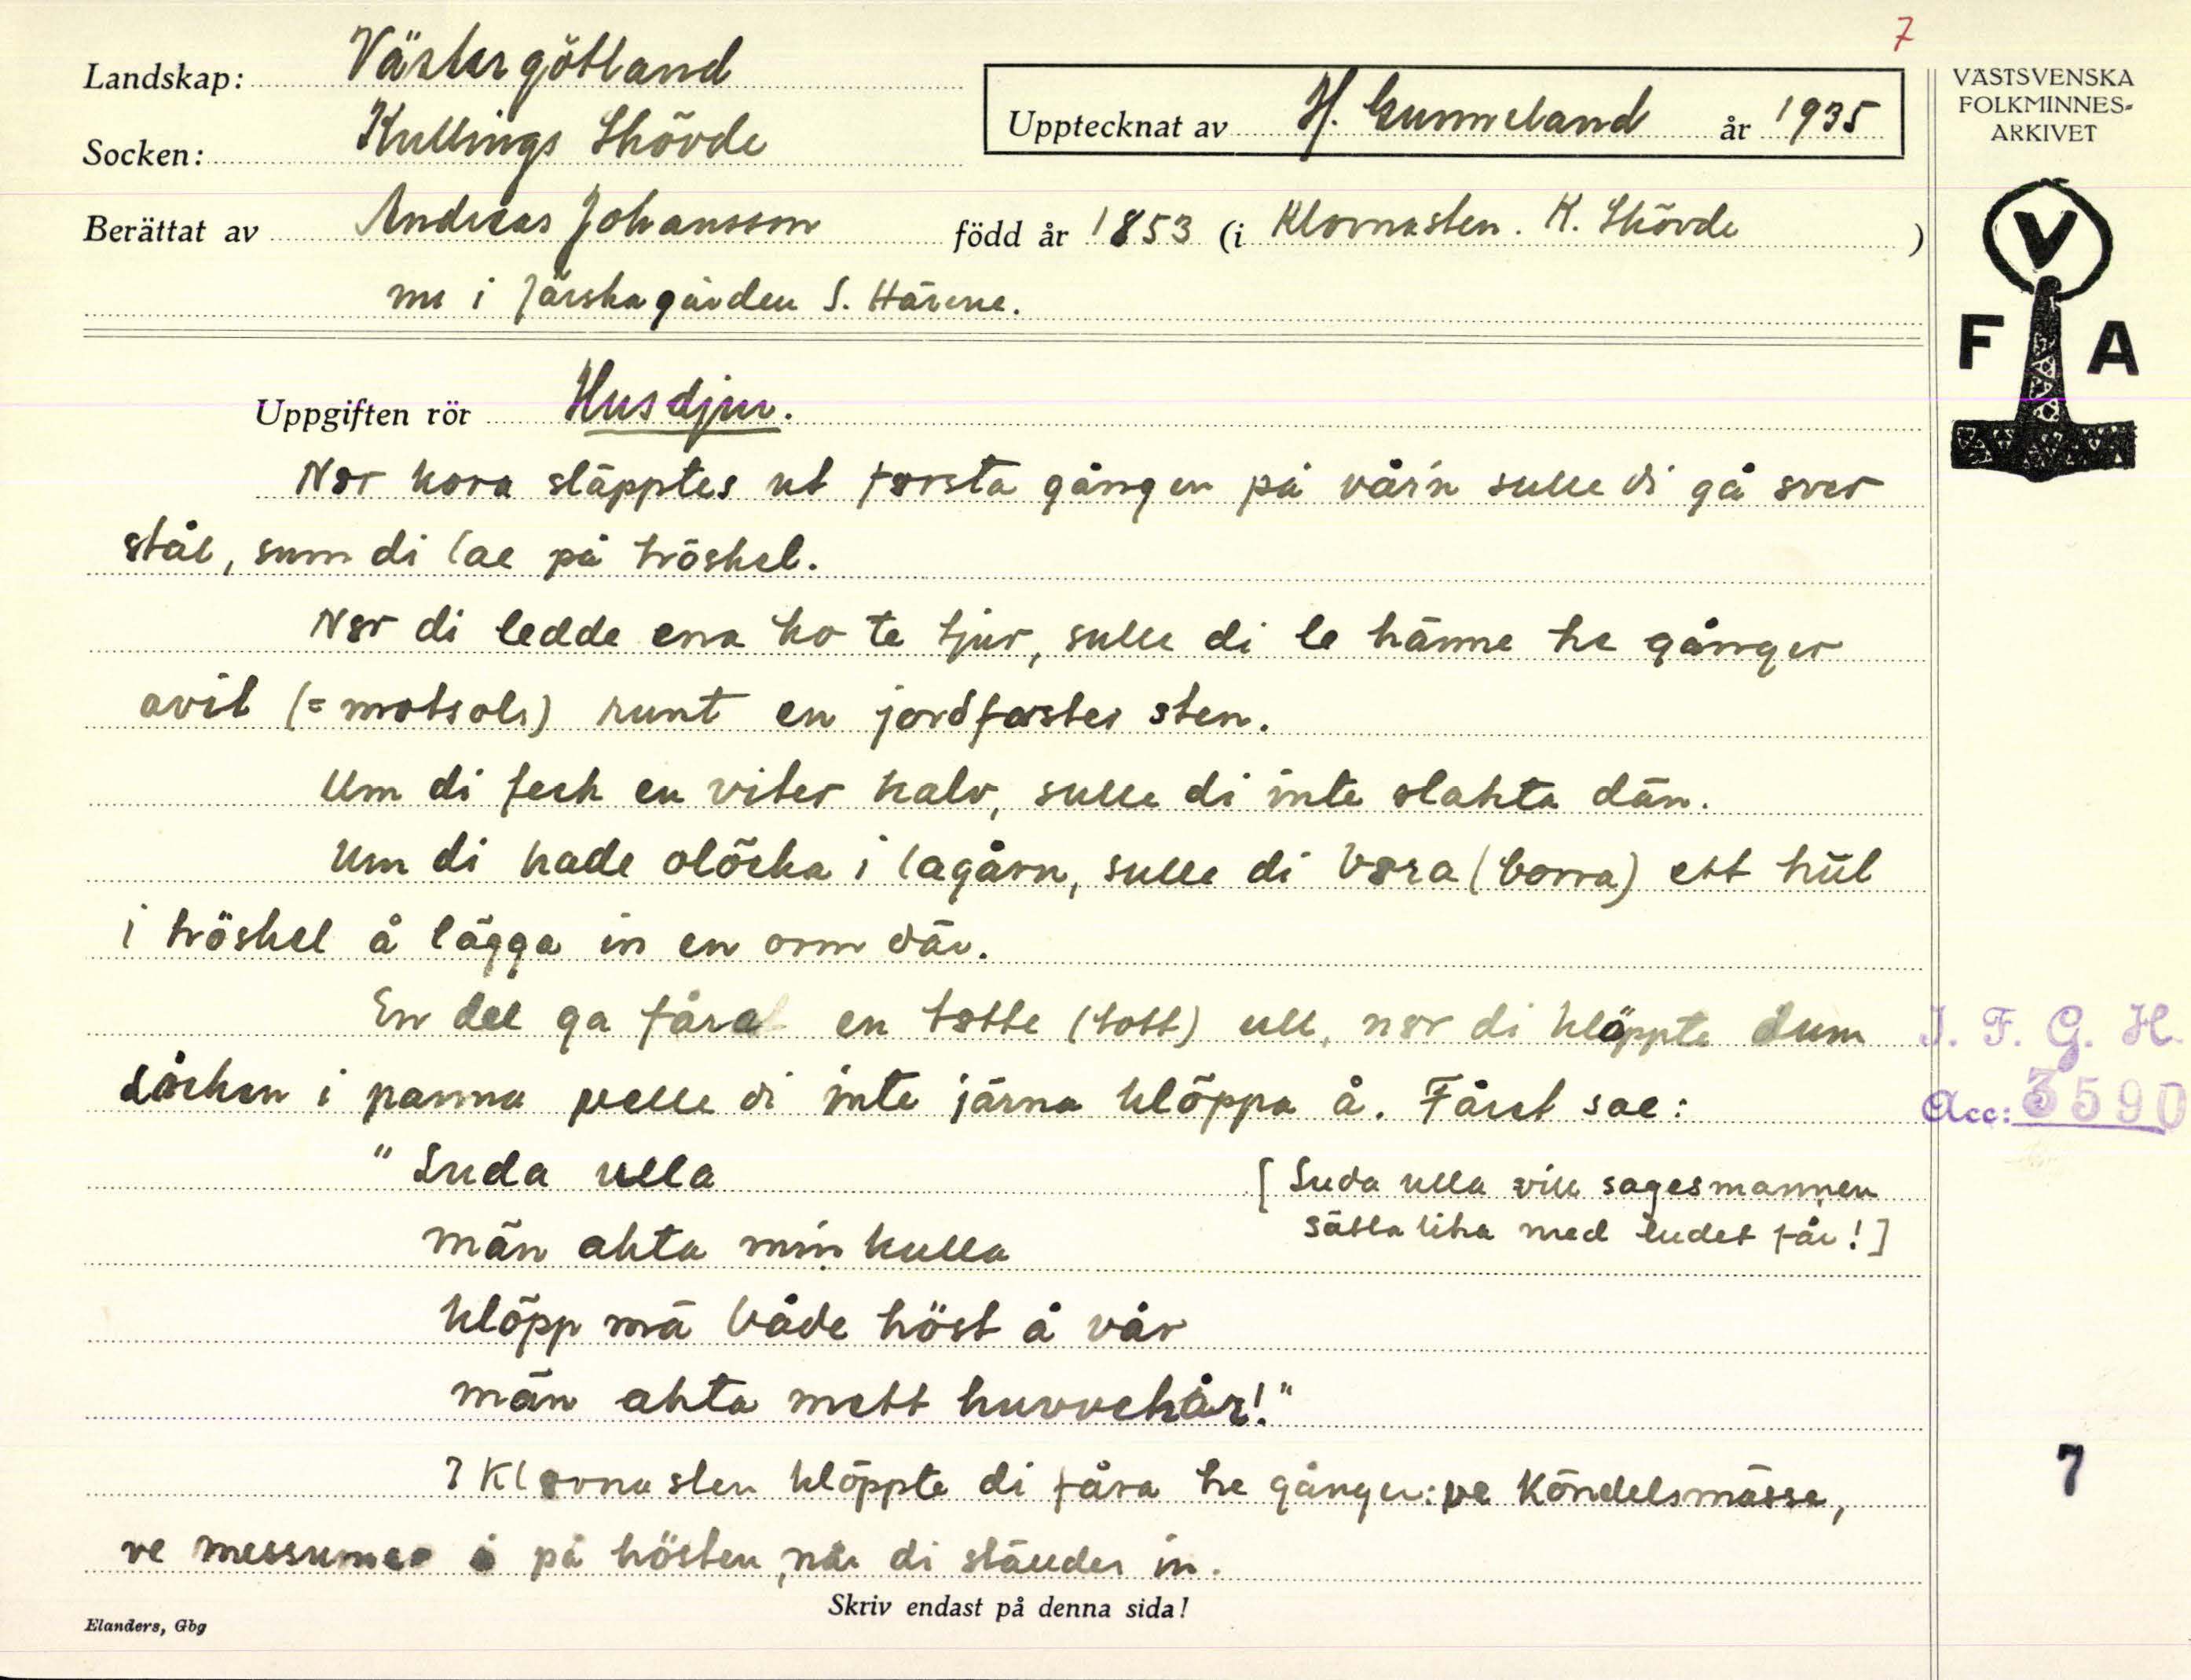 7
Landskap: Västergötland
Socken: Kullings Skövde
Upptecknat av H. Gunneland år 1935
Berättat av Andreas Johansson född år 1853 (i Klovnasten. K. Skövde )
nu i Jäiska gården S. Härene.
VÄSTSVENSKA
FOLKMINNES-
ARKIVET
V
F A
Uppgiften rör Husdjur.
Nør kora släpptes ut første gången på vår'n sulle di gå øver
stål, sum di lae på tröskel.
Nør di ledde ena ko te tjur, sulle di le hänne tre gånger
avit (=motsols) runt en jordfaster sten.
Um di feck en viter kalv, sulle di inte slakta dän.
Um di hade olöcka i lagårn, sulle di børa (borra) ett hūl
i tröskel å lägga in en orm där.
En del ga fåra en tøtte (tott) ull, nør di klöppte dum
såcken i panna velle di inte järna klöppa å. Fåret sae:
"Luda ulla
män akta min kulla
klöpp mä både höst å vår
män akta mett huvvehår!"
[Luda ulla vill sagesmannen
sätta lika med ludet får!]
I Kløvnasten klöppte di fåra tre gånger: ve Köndelsmässa,
ve messummer å på hösten, når di ställdes in.
J. F. G. H.
Acc: 3590
7
Skriv endast på denna sida!
Elanders, Gbg